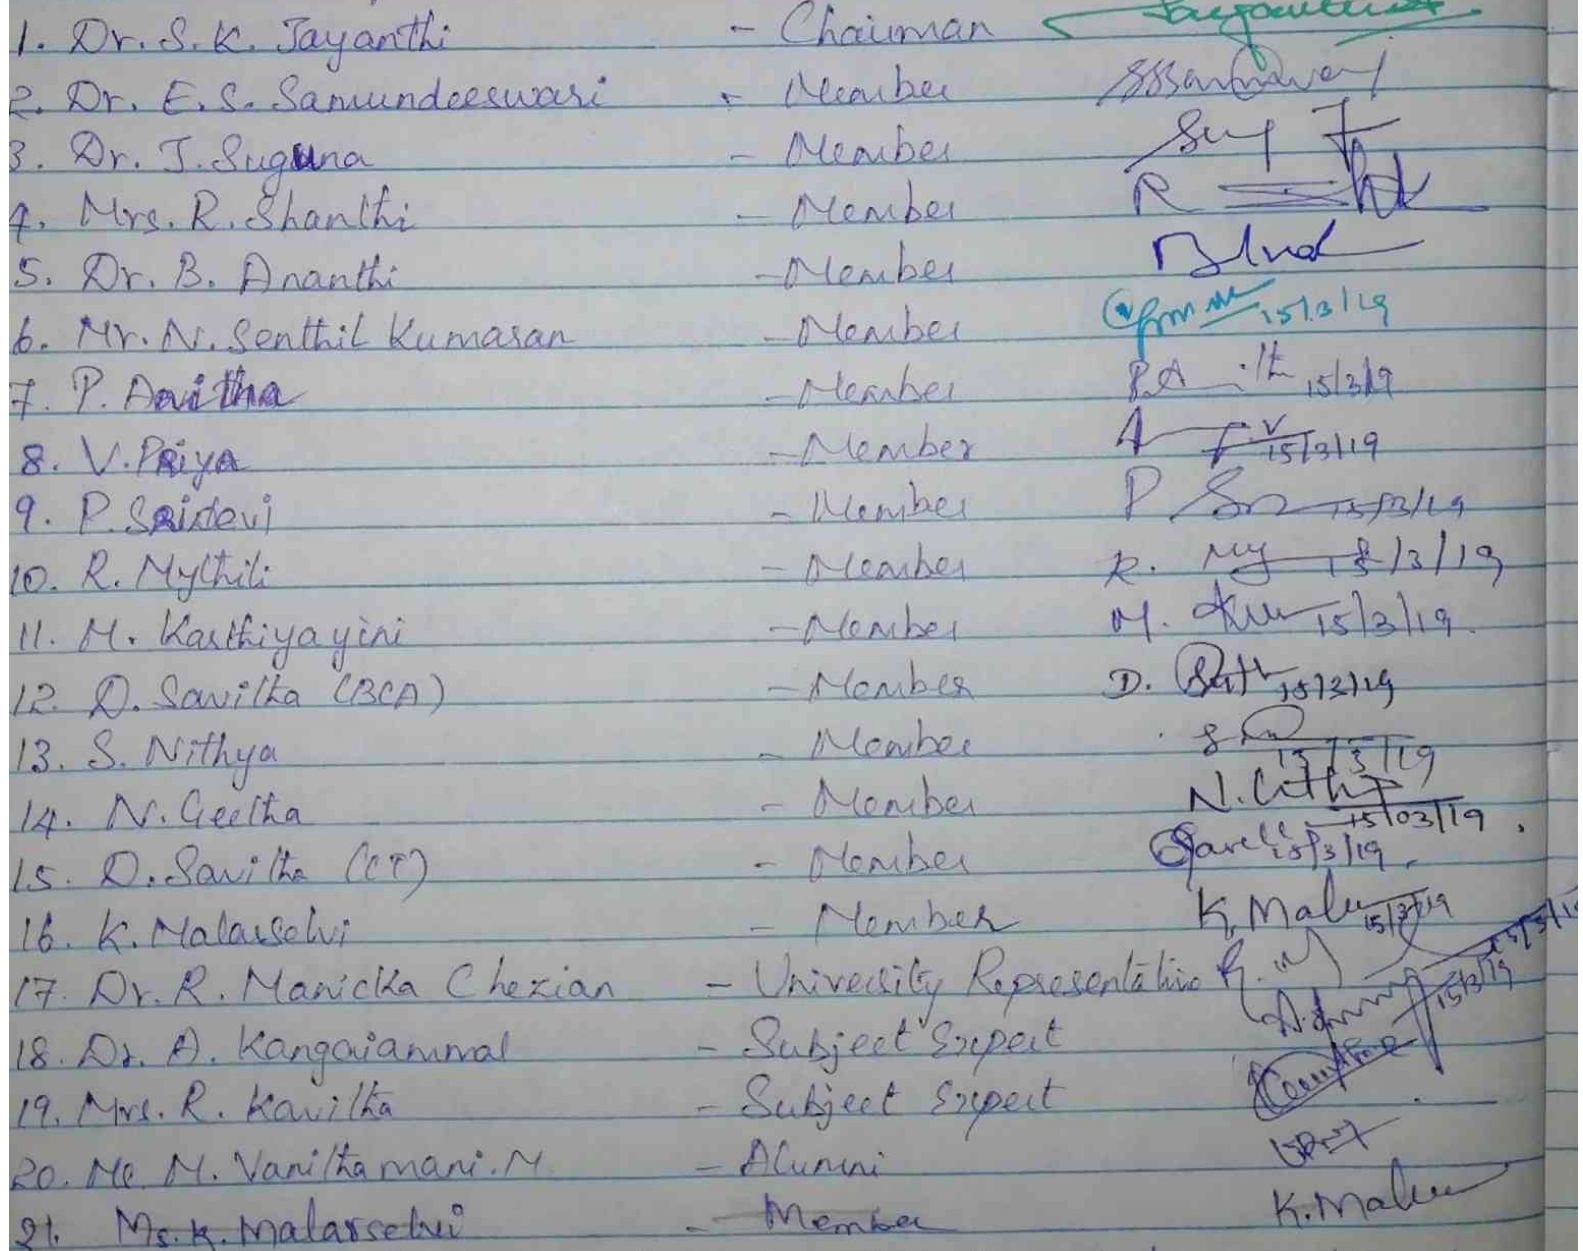 1. Dr. S. K. Jayanthi - Chairman
2. Dr. E. S. Samundeeswari - Member
3. Dr. J. Suguna - Member
4. Mrs. R. Shanthi - Member R
5. Dr. B. Ananthi - Member
6. Mr. N. Senthil Kumaran - Member 15/3/19
7. P. Anitha - Member P.A 15/3/19
8. V. Priya - Member 15/3/19
9. P. Sridevi - Member P 15/3/19
10. R. Mythili - Member R. My 15/3/19
11. M. Karthiyayini - Member M. 15/3/19
12. D. Savitha (BCA) - Member D. 15/3/19
13. S. Nithya - Member 15/3/19
14. N. Geetha - Member N. 15/03/19
15. D. Savitha (CT) - Member 15/3/19
16. K. Malarselvi - Member K. Malar 15/3/19
17. Dr. R. Manicka Chezian - University Representative R. 15/3/19
18. Dr. A. Kangaiammal - Subject Expert 15/3/19
19. Mrs. R. Kavitha - Subject Expert
20. M. Vanithamani. M - Alumini
21. Ms. K. Malarselvi - Member K. Malar